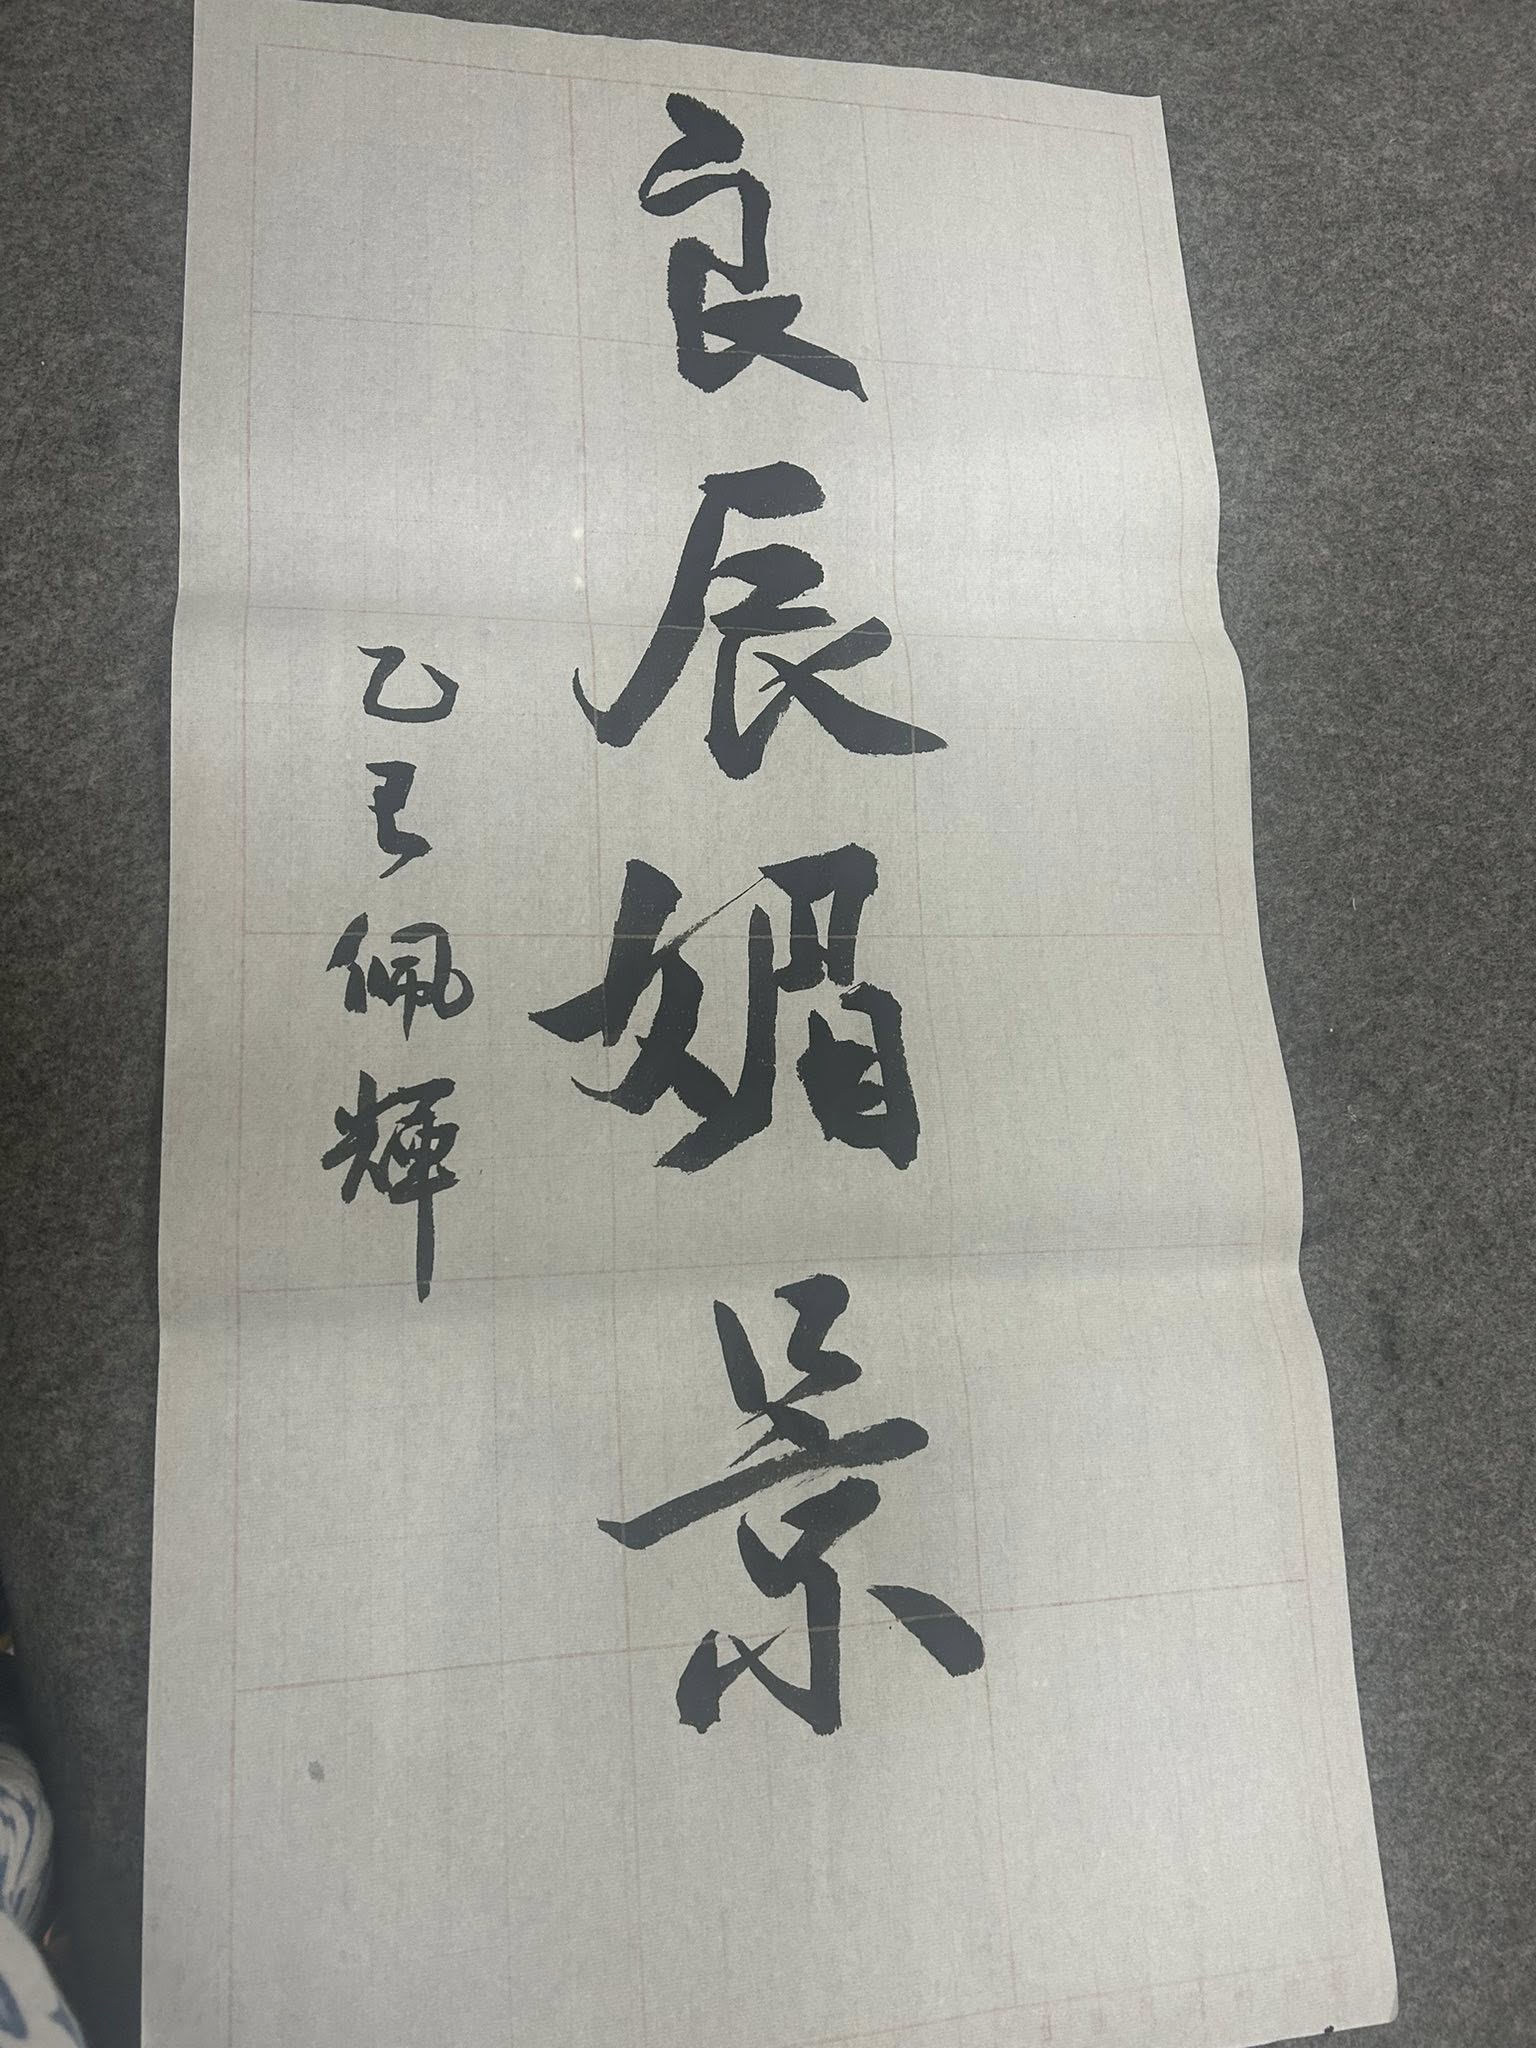 良辰媚景
乙巳佩辉